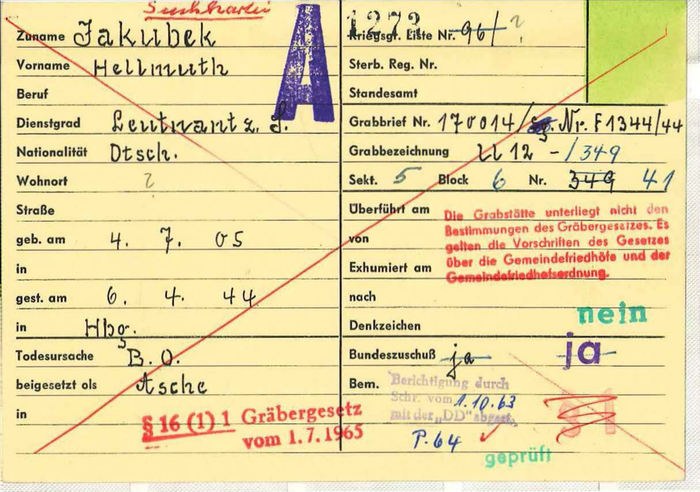 Suchkartei
A
Zuname Jakubek
Vorname Hellmuth
Beruf
Dienstgrad Leutnant z. S.
Nationalität Dtsch.
Wohnort ?
Straße
geb. am 4. 7. 05
in
gest. am 6. 4. 44
in Hbg.
Todesursache B.O.
beigesetzt als Asche
in
§ 16 (1) 1 Gräbergesetz
vom 1.7.1965
1273
Kriegsgr. Liste Nr. 96/ ?
Sterb. Reg. Nr.
Standesamt
Grabbrief Nr. 170014/ Nr. F1344/44
Grabbezeichnung LL 12 -/349
Sekt. 5 Block 6 Nr. 349 41
Überführt am
von
Exhumiert am
nach
Die Grabstätte unterliegt nicht den
Bestimmungen des Gräbergesetzes. Es
gelten die Vorschriften des Gesetzes
über die Gemeindefriedhöfe und der
Gemeindefriedhofsordnung.
Denkzeichen nein
Bundeszuschuß ja ja
Bem. Berichtigung durch
Schr. vom 1.10.63
mit der „DD" abgest.
P. 64
geprüft